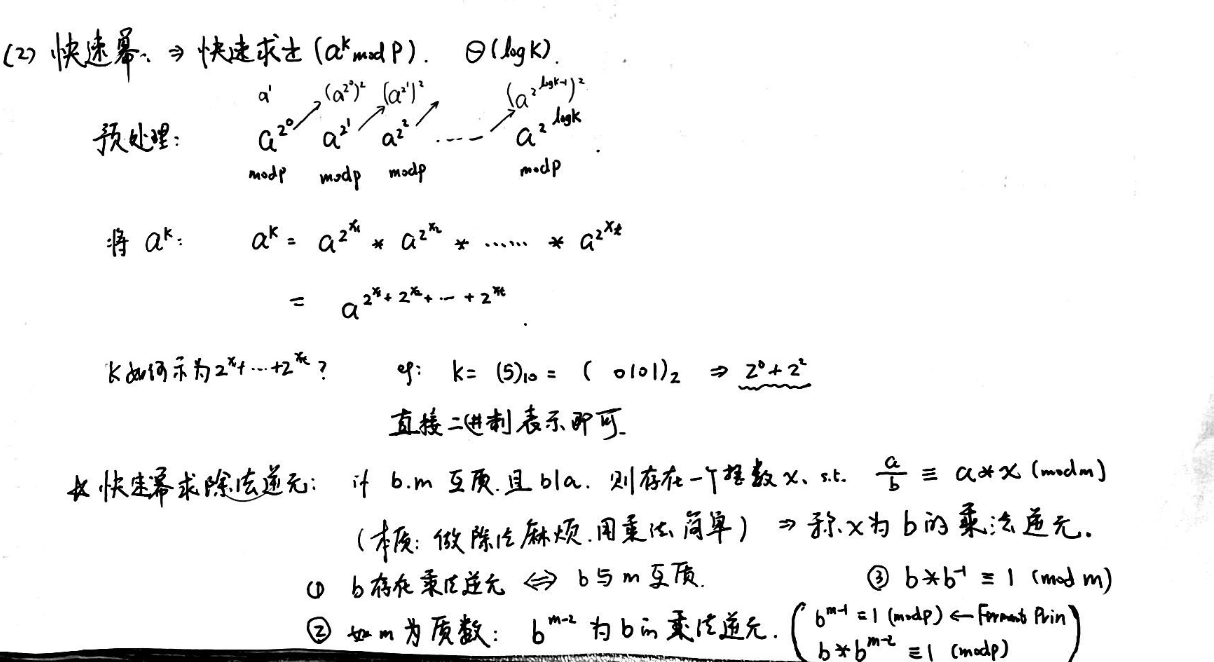 (2) 快速幂. ⇒ 快速求出 (a^k mod P). Θ(log K).
a^1 (a^{2^0})^2 (a^{2^1})^2 (a^{2^{logk-1}})^2
预处理: a^{2^0} a^{2^1} a^{2^2} ...... a^{2^{logk}}.
modp modp modp modp
将 a^k: a^k = a^{2^{x_1}} * a^{2^{x_2}} * ...... * a^{2^{x_t}}
= a^{2^{x_1}+2^{x_2}+...+2^{x_t}}.
K如何示为 2^{x_1}+...+2^{x_t}? eg: k = (5)_{10} = ( 0101)_2 ⇒ 2^0+2^2
直接二进制表示即可.
☆ 快速幂求除法逆元: if b.m 互质.且 b|a. 则存在一个整数 x, s.t. a/b ≡ a*x (mod m)
(本质: 做除法麻烦.用乘法简单) ⇒ 称x为b的乘法逆元.
① b存在乘法逆元 ⇔ b与m互质. ③ b*b^{-1} ≡ 1 (mod m)
② 如m为质数: b^{m-2} 为b的乘法逆元. (b^{m-1} = 1 (modp) ←
b*b^{m-2} ≡ 1 (modp) )